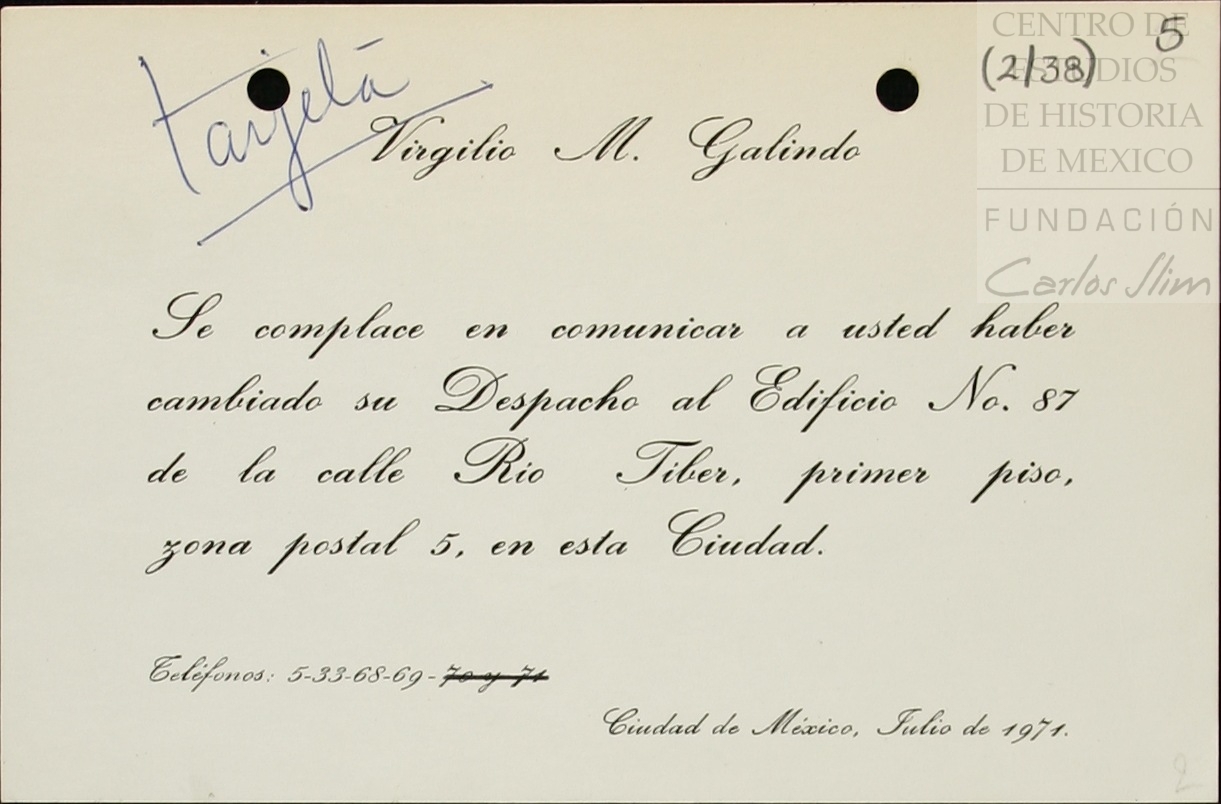 CENTRO DE
ESTUDIOS
DE HISTORIA
DE MEXICO
FUNDACIÓN
Carlos Slim
5
(2/38)
tarjeta
Virgilio M. Galindo
Se complace en comunicar a usted haber
cambiado su Despacho al Edificio No. 87
de la calle Río Tiber, primer piso,
zona postal 5, en esta Ciudad.
Teléfonos: 5-33-68-69-70 y 71
Ciudad de México, Julio de 1971.
2